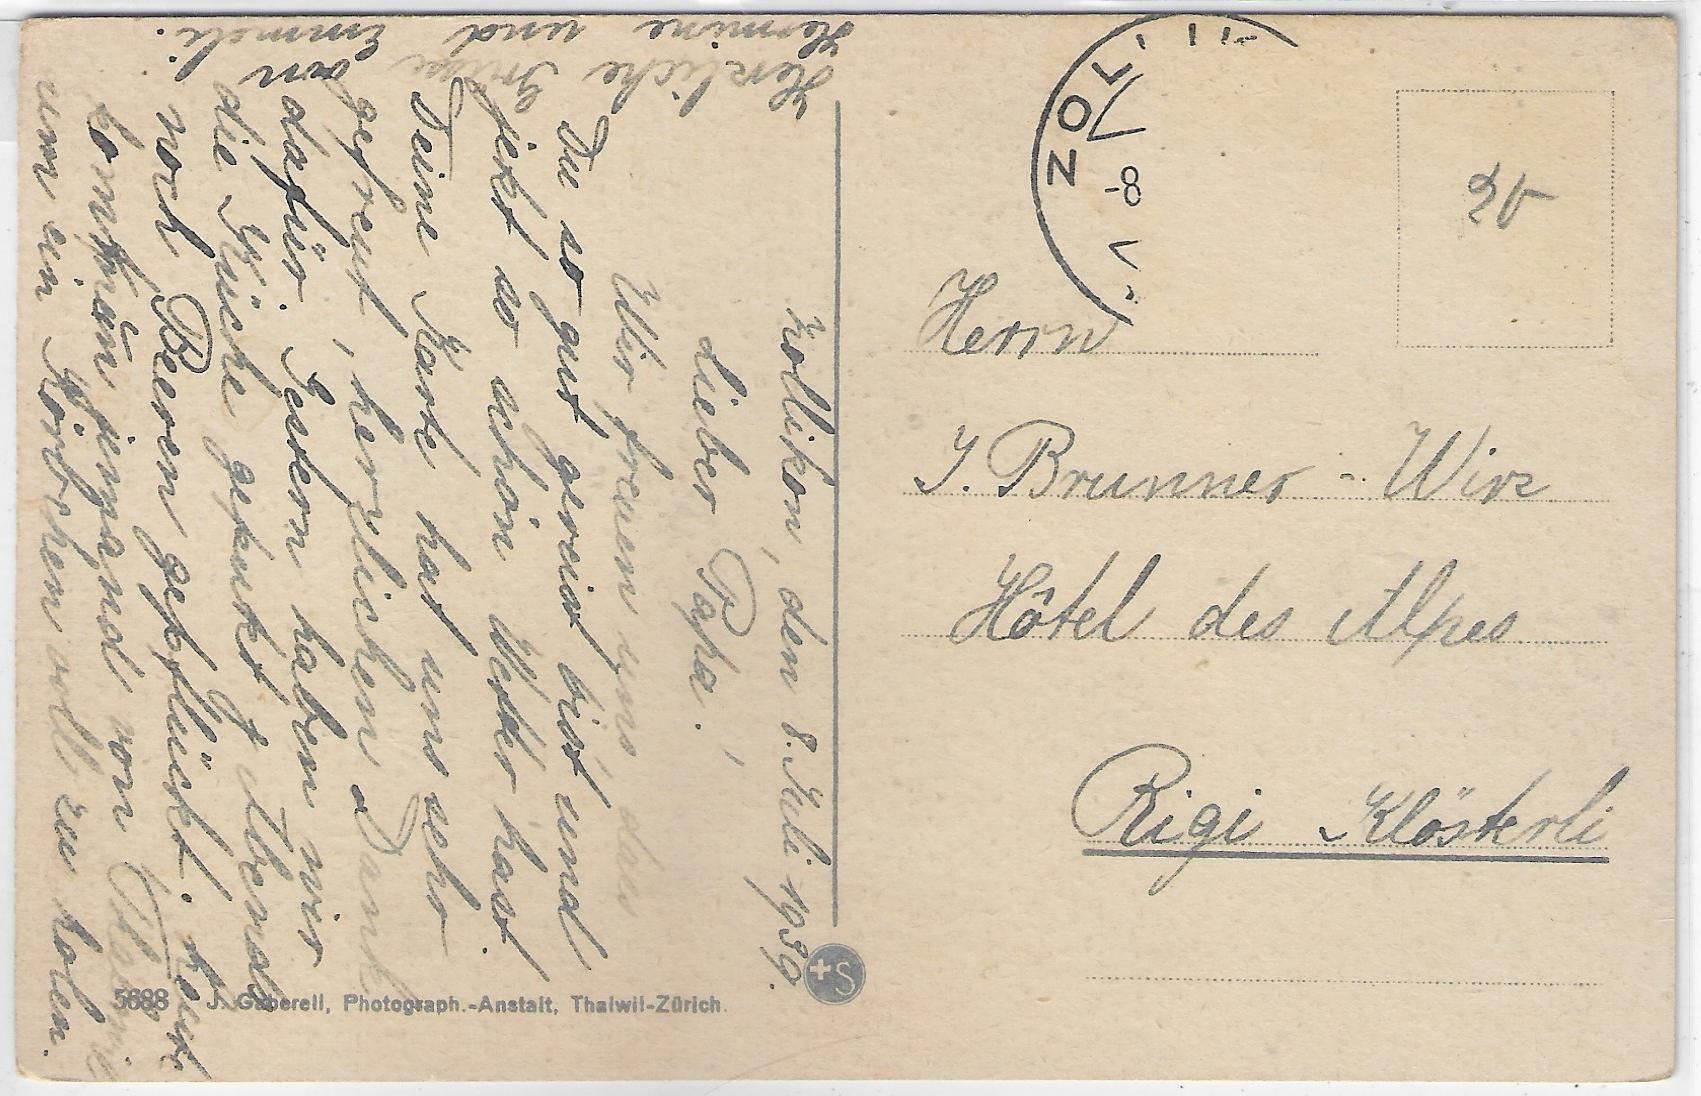 Zollikon, den 8. Juli 1939.
Lieber Papa!
Wir freuen uns, dass
Du so gut gereist bist und
jetzt so schön Wetter hast.
Deine Karte hat uns sehr
gefreut, herzlichen Dank
dafür. Gestern haben wir
die Küche geputzt & Abends
noch Beeren gepflückt. Heute
kommt jemand von
um ein Körbchen voll zu holen.
Herzliche Grüsse von
Hermine und Emmeli.
ZOLLI
8. V
Herrn
J. Brunner-Wirz
Hôtel des Alpes
Rigi Klösterli
+S
5688 J. Gaberell, Photograph.-Anstalt, Thalwil-Zürich.